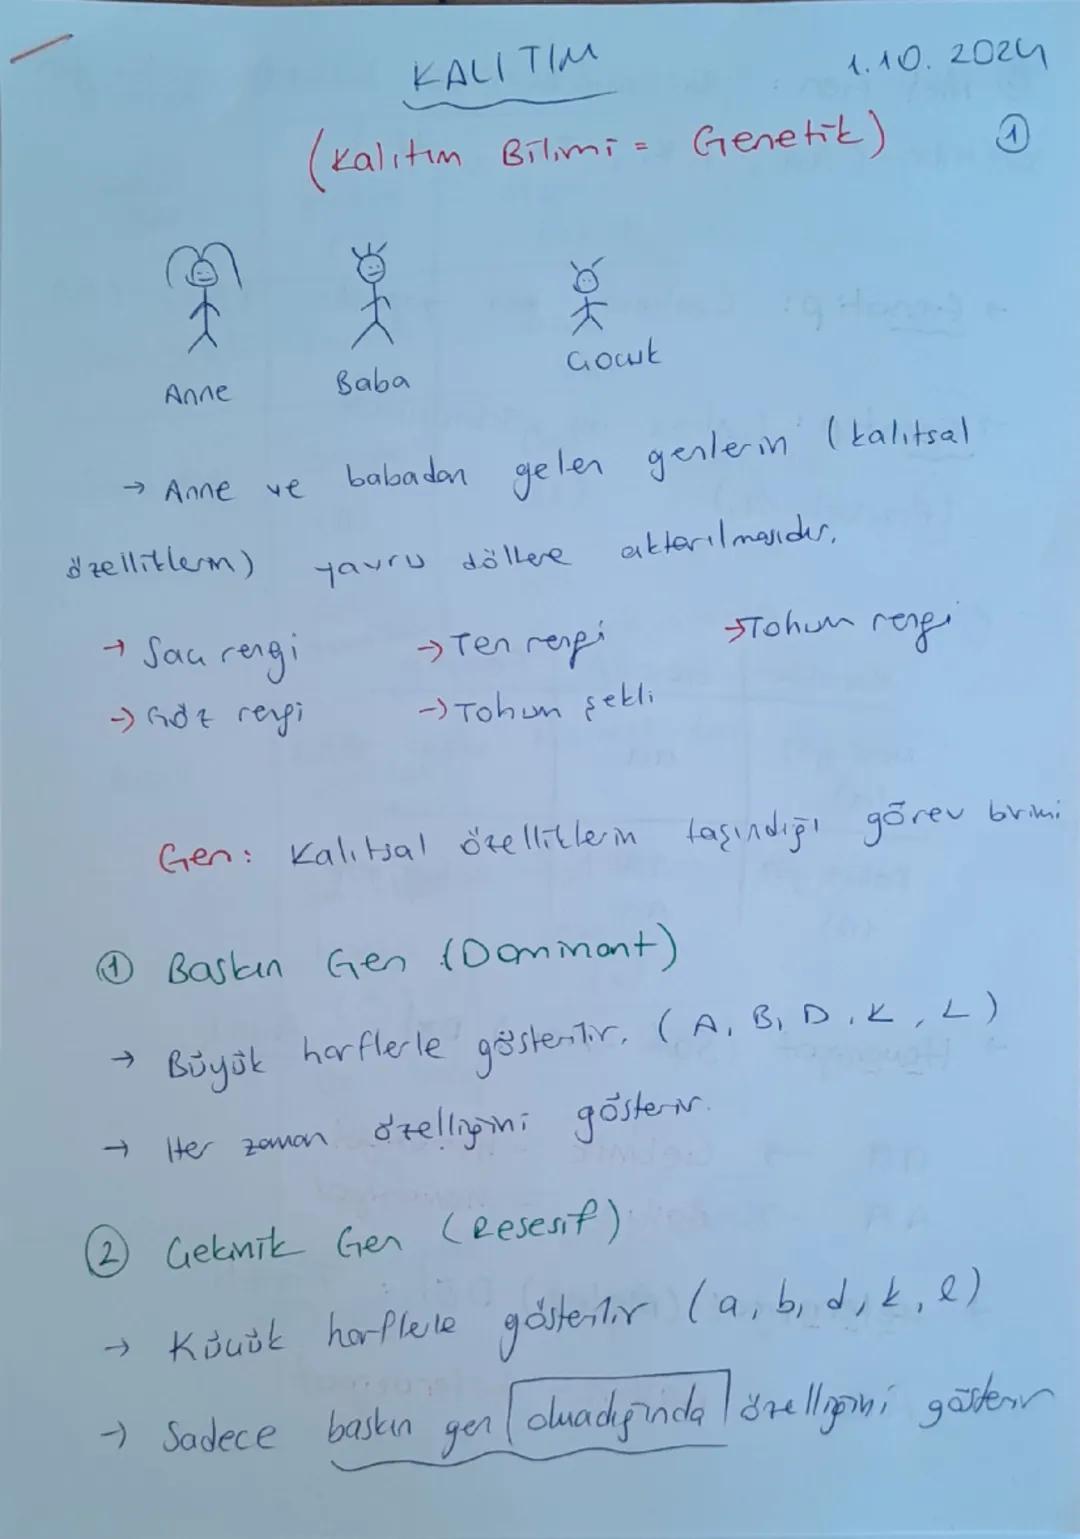 KALITIM
1.10.2024
(Kalıtım Bilimi = Genetik)
1
Anne
Baba
Çocuk
→ Anne ve babadan gelen genlerin (kalıtsal
özelliklerin) yavru döllere aktarılmasıdır.
→ Saç rengi → Ten rengi → Tohum rengi
→ Göz rengi → Tohum şekli
Gen: Kalıtsal özelliklerin taşındığı görev birimi
1 Baskın Gen (Dominant)
→ Büyük harflerle gösterilir. (A, B, D, K, L)
→ Her zaman özelliğini gösterir.
2 Çekinik Gen (Resesif)
→ Küçük harflerle gösterilir (a, b, d, k, l)
→ Sadece baskın gen olmadığında özelliğini gösterir